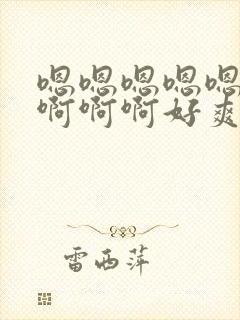 嗯嗯嗯嗯嗯
啊啊啊好爽
雷西萍